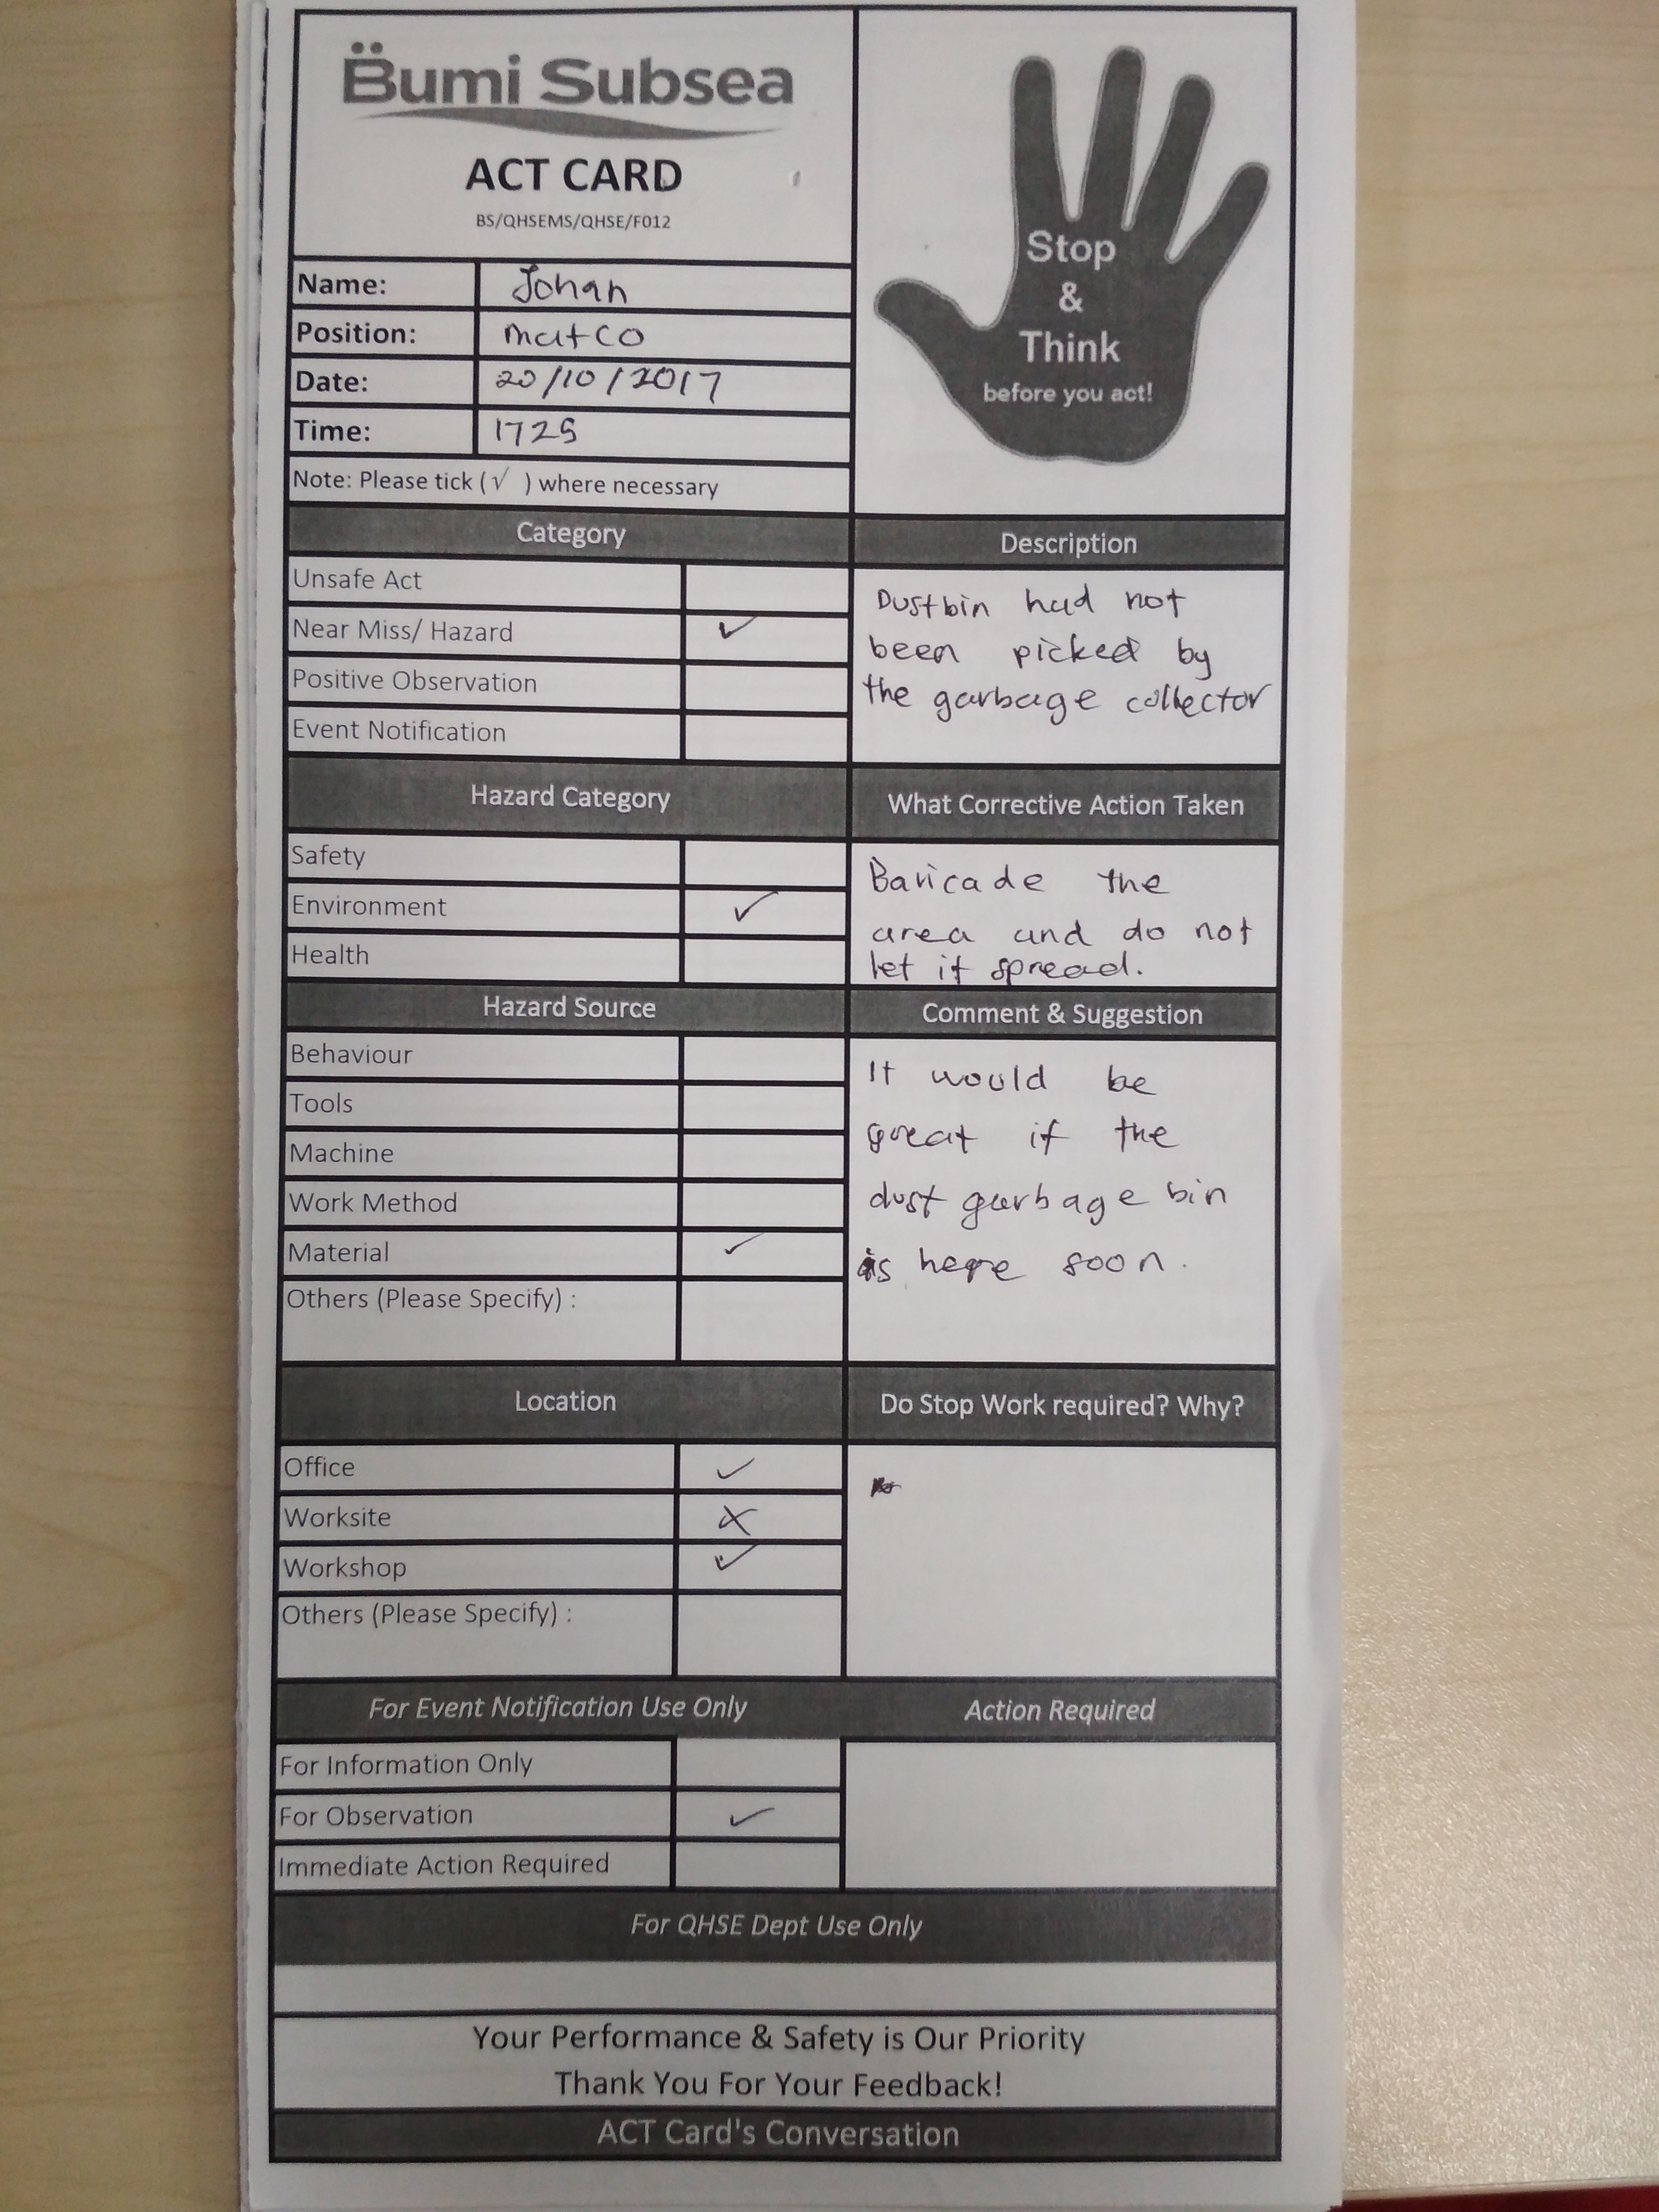 Bumi Subsea
ACT CARD
BS/QHSEMS/QHSE/F012
Stop
&
Think
before you act!
Name: Johan
Position: Matco
Date: 20/10/2017
Time: 1725
Note: Please tick (√ ) where necessary
Category
Unsafe Act
Near Miss/ Hazard ✓
Positive Observation
Event Notification
Description
Dustbin had not
been picked by
the garbage collector
Hazard Category
Safety
Environment ✓
Health
What Corrective Action Taken
Baricade the
area and do not
let it spread.
Hazard Source
Behaviour
Tools
Machine
Work Method
Material ✓
Others (Please Specify) :
Comment & Suggestion
It would be
great if the
dust garbage bin
is here soon.
Location
Office ✓
Worksite X
Workshop ✓
Others (Please Specify) :
Do Stop Work required? Why?
For Event Notification Use Only
For Information Only
For Observation ✓
Immediate Action Required
Action Required
For QHSE Dept Use Only
Your Performance & Safety is Our Priority
Thank You For Your Feedback!
ACT Card's Conversation